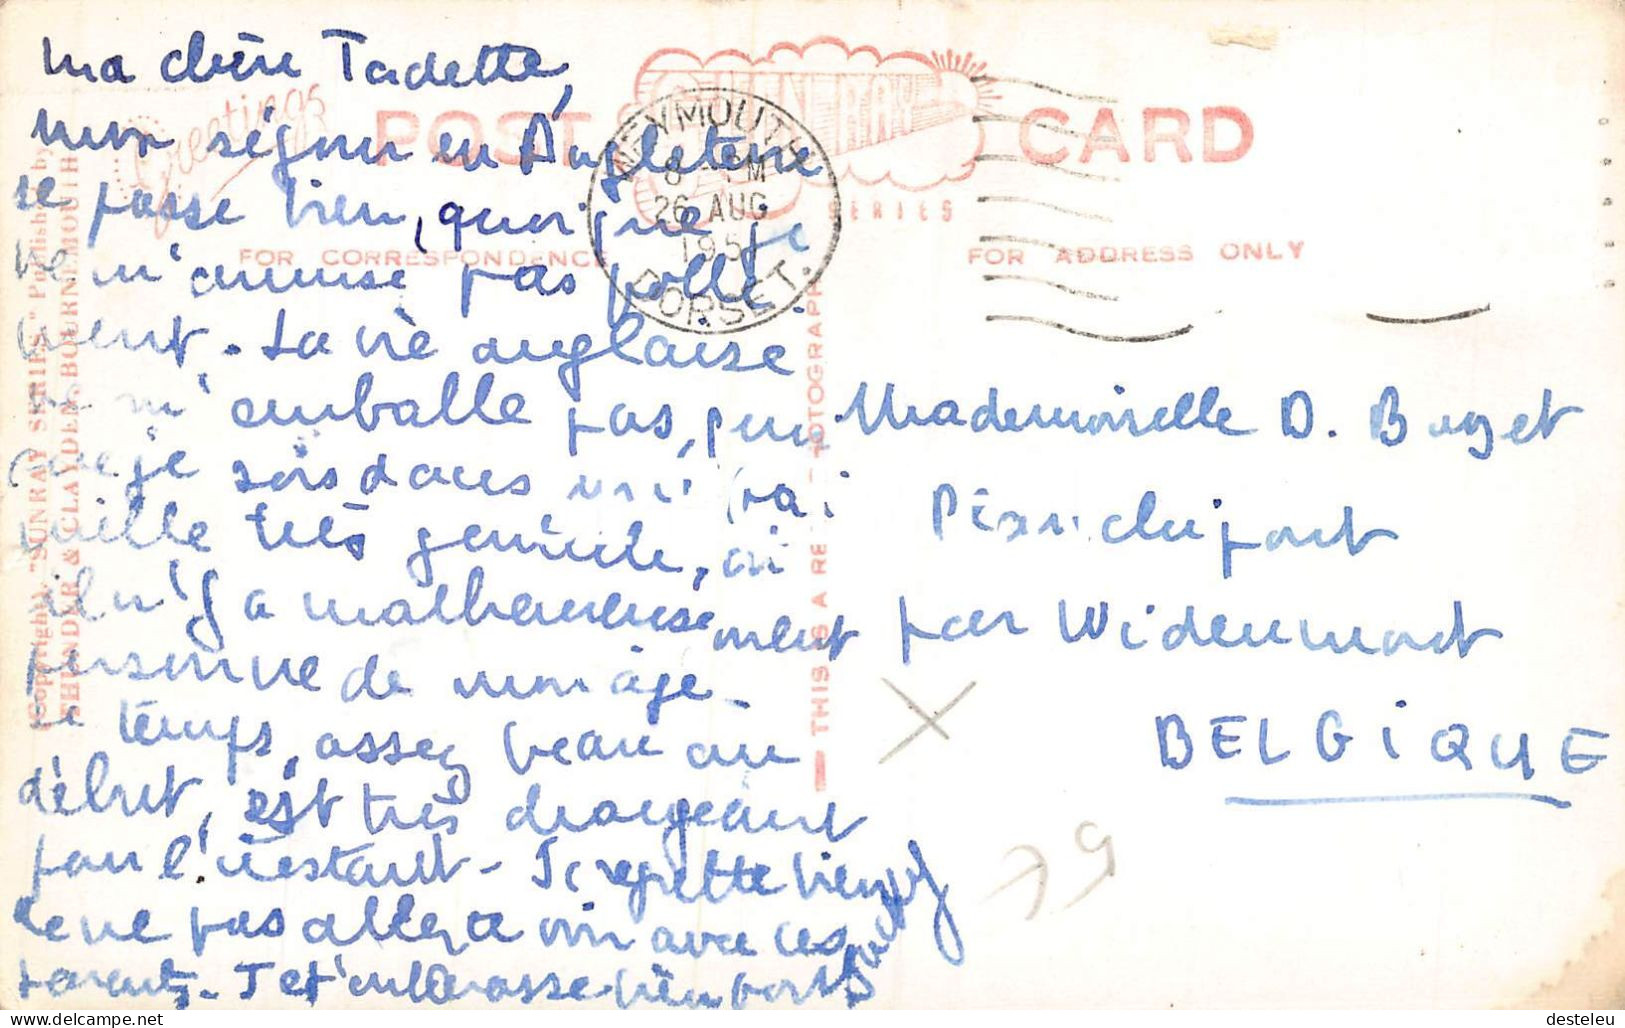 Ma chère Tadette,
mon séjour en Angleterre
se passe bien, quoique je
ne m'amuse pas folle
ment. La vie anglaise
ne m'emballe pas, puis
que je suis dans une fa
mille très gentille, où
il n'y a malheureuse
ment
personne de mon âge.
Le temps, assez beau au
début, est très changeant
pour l'instant. Je regrette bien
de ne pas aller te voir avec
parents. Je t'embrasse bien fort
Greetings
POST CARD
SUNRAY
SERIES
FOR CORRESPONDENCE
FOR ADDRESS ONLY
WEYMOUTH
26 AUG
195
DORSET.
(Copyright). "SUNRAY SERIES." Published by
THUNDER & CLAYDEN, BOURNEMOUTH
THIS IS A RE PHOTOGRAPH
Mademoiselle D. Buzet
par Widenmont
BELGIQUE
79
desteleu